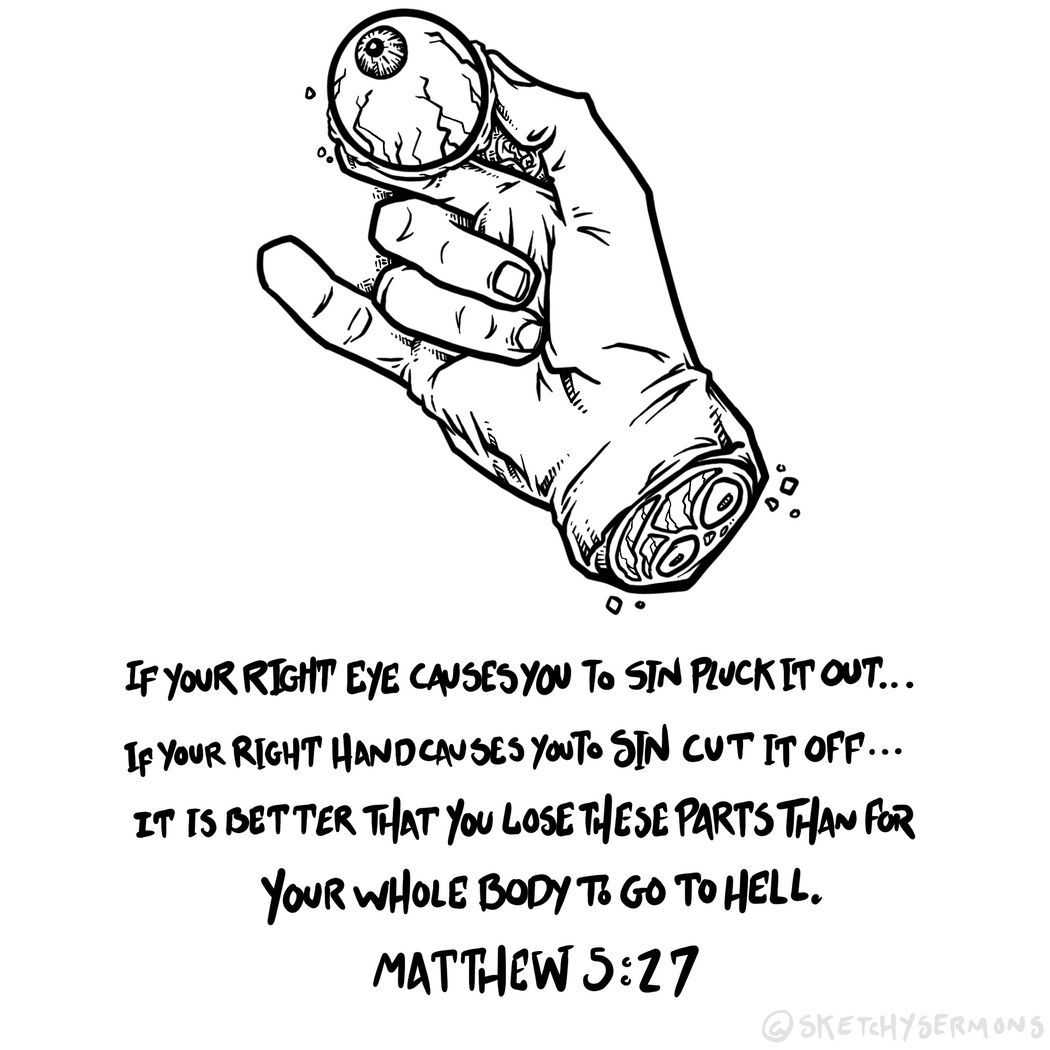 IF YOUR RIGHT EYE CAUSES YOU TO SIN PLUCK IT OUT...
IF YOUR RIGHT HAND CAUSES YOU TO SIN CUT IT OFF...
IT IS BETTER THAT YOU LOSE THESE PARTS THAN FOR
YOUR WHOLE BODY TO GO TO HELL.
MATTHEW 5:27
@SKETCHYSERMONS